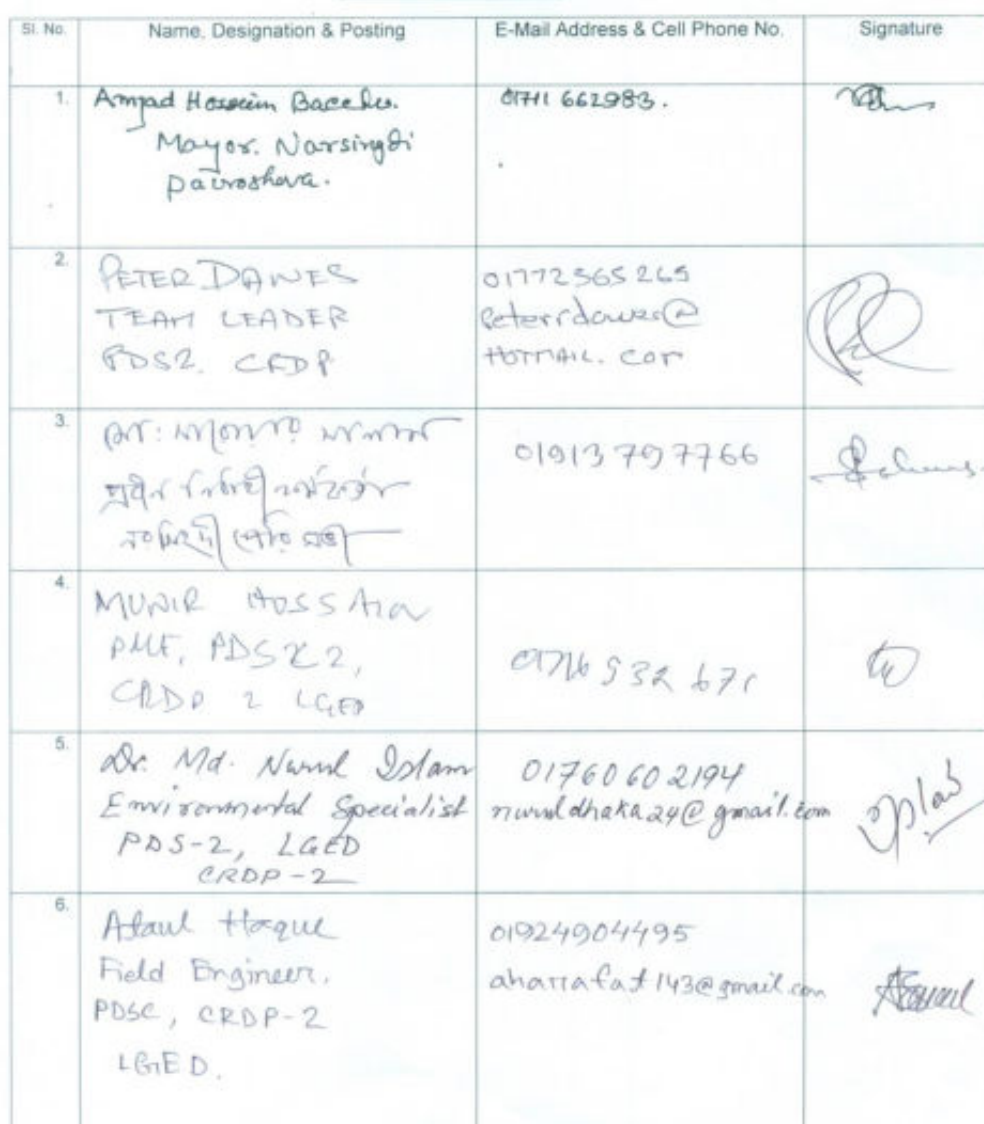 Sl. No.
Name, Designation & Posting
E-Mail Address & Cell Phone No.
Signature
1.
Amjad Hossein Bacchu.
Mayor. Narsingdi
Pauroshava.
01711 662983.
2.
PETER DAWES
TEAM LEADER
PDS2. CRDP
01772565265
peterrdawes@
HOTMAIL. COM
3.
প্রধান নির্বাহী কর্মকর্তা
নরসিংদী পৌরসভা
01913797766
4.
MUNIR HOSSAIN
CRDP 2 LGED
01716 932 671
5.
Dr. Md. Nurul Islam
Environmental Specialist
PDS-2, LGED
CRDP-2
01760602194
nuruldhaka24@gmail.com
6.
Ataul Haque
Field Engineer.
PDSC, CRDP-2
LGED.
01924904495
aharrafat143@gmail.com